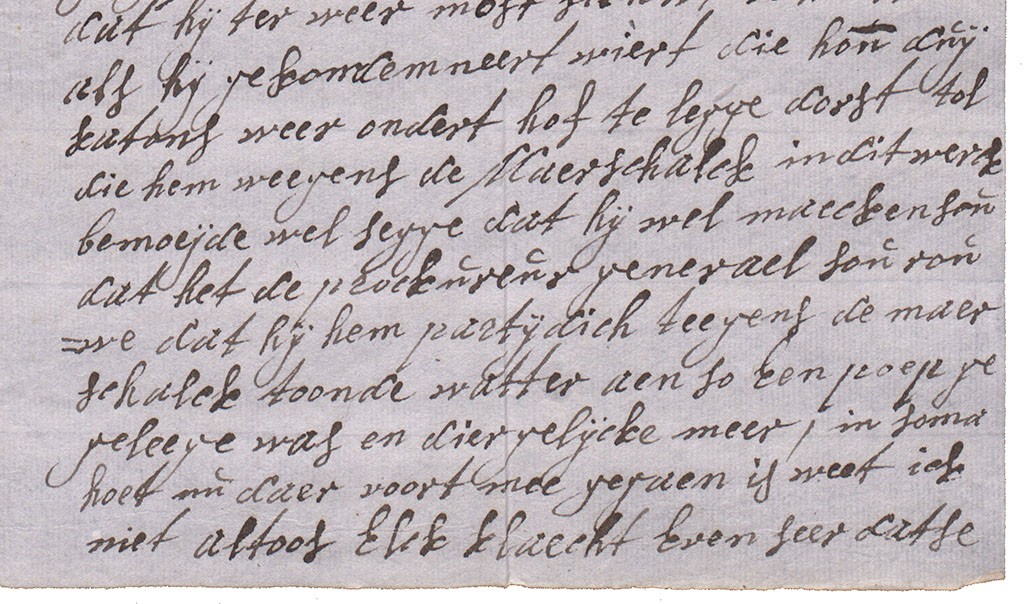 dat hij ter weer most
als hij gekondemneert wiert die hon duij
katons weer ondert hof te legge dorst tol
die hem weegens de Maerschalck in dit werck
bemoeijde wel segge dat hij wel maecken soú
dat het de prockúreúr generael soú roú
=we dat hij hem partijdich teegens de maer
schalck toonde watter aen so een poep ge
geleege was en diergelijcke meer / in soma
hoet nú daer voort mee gegaen is weet ick
niet altoos Elck klaecht Even seer datse